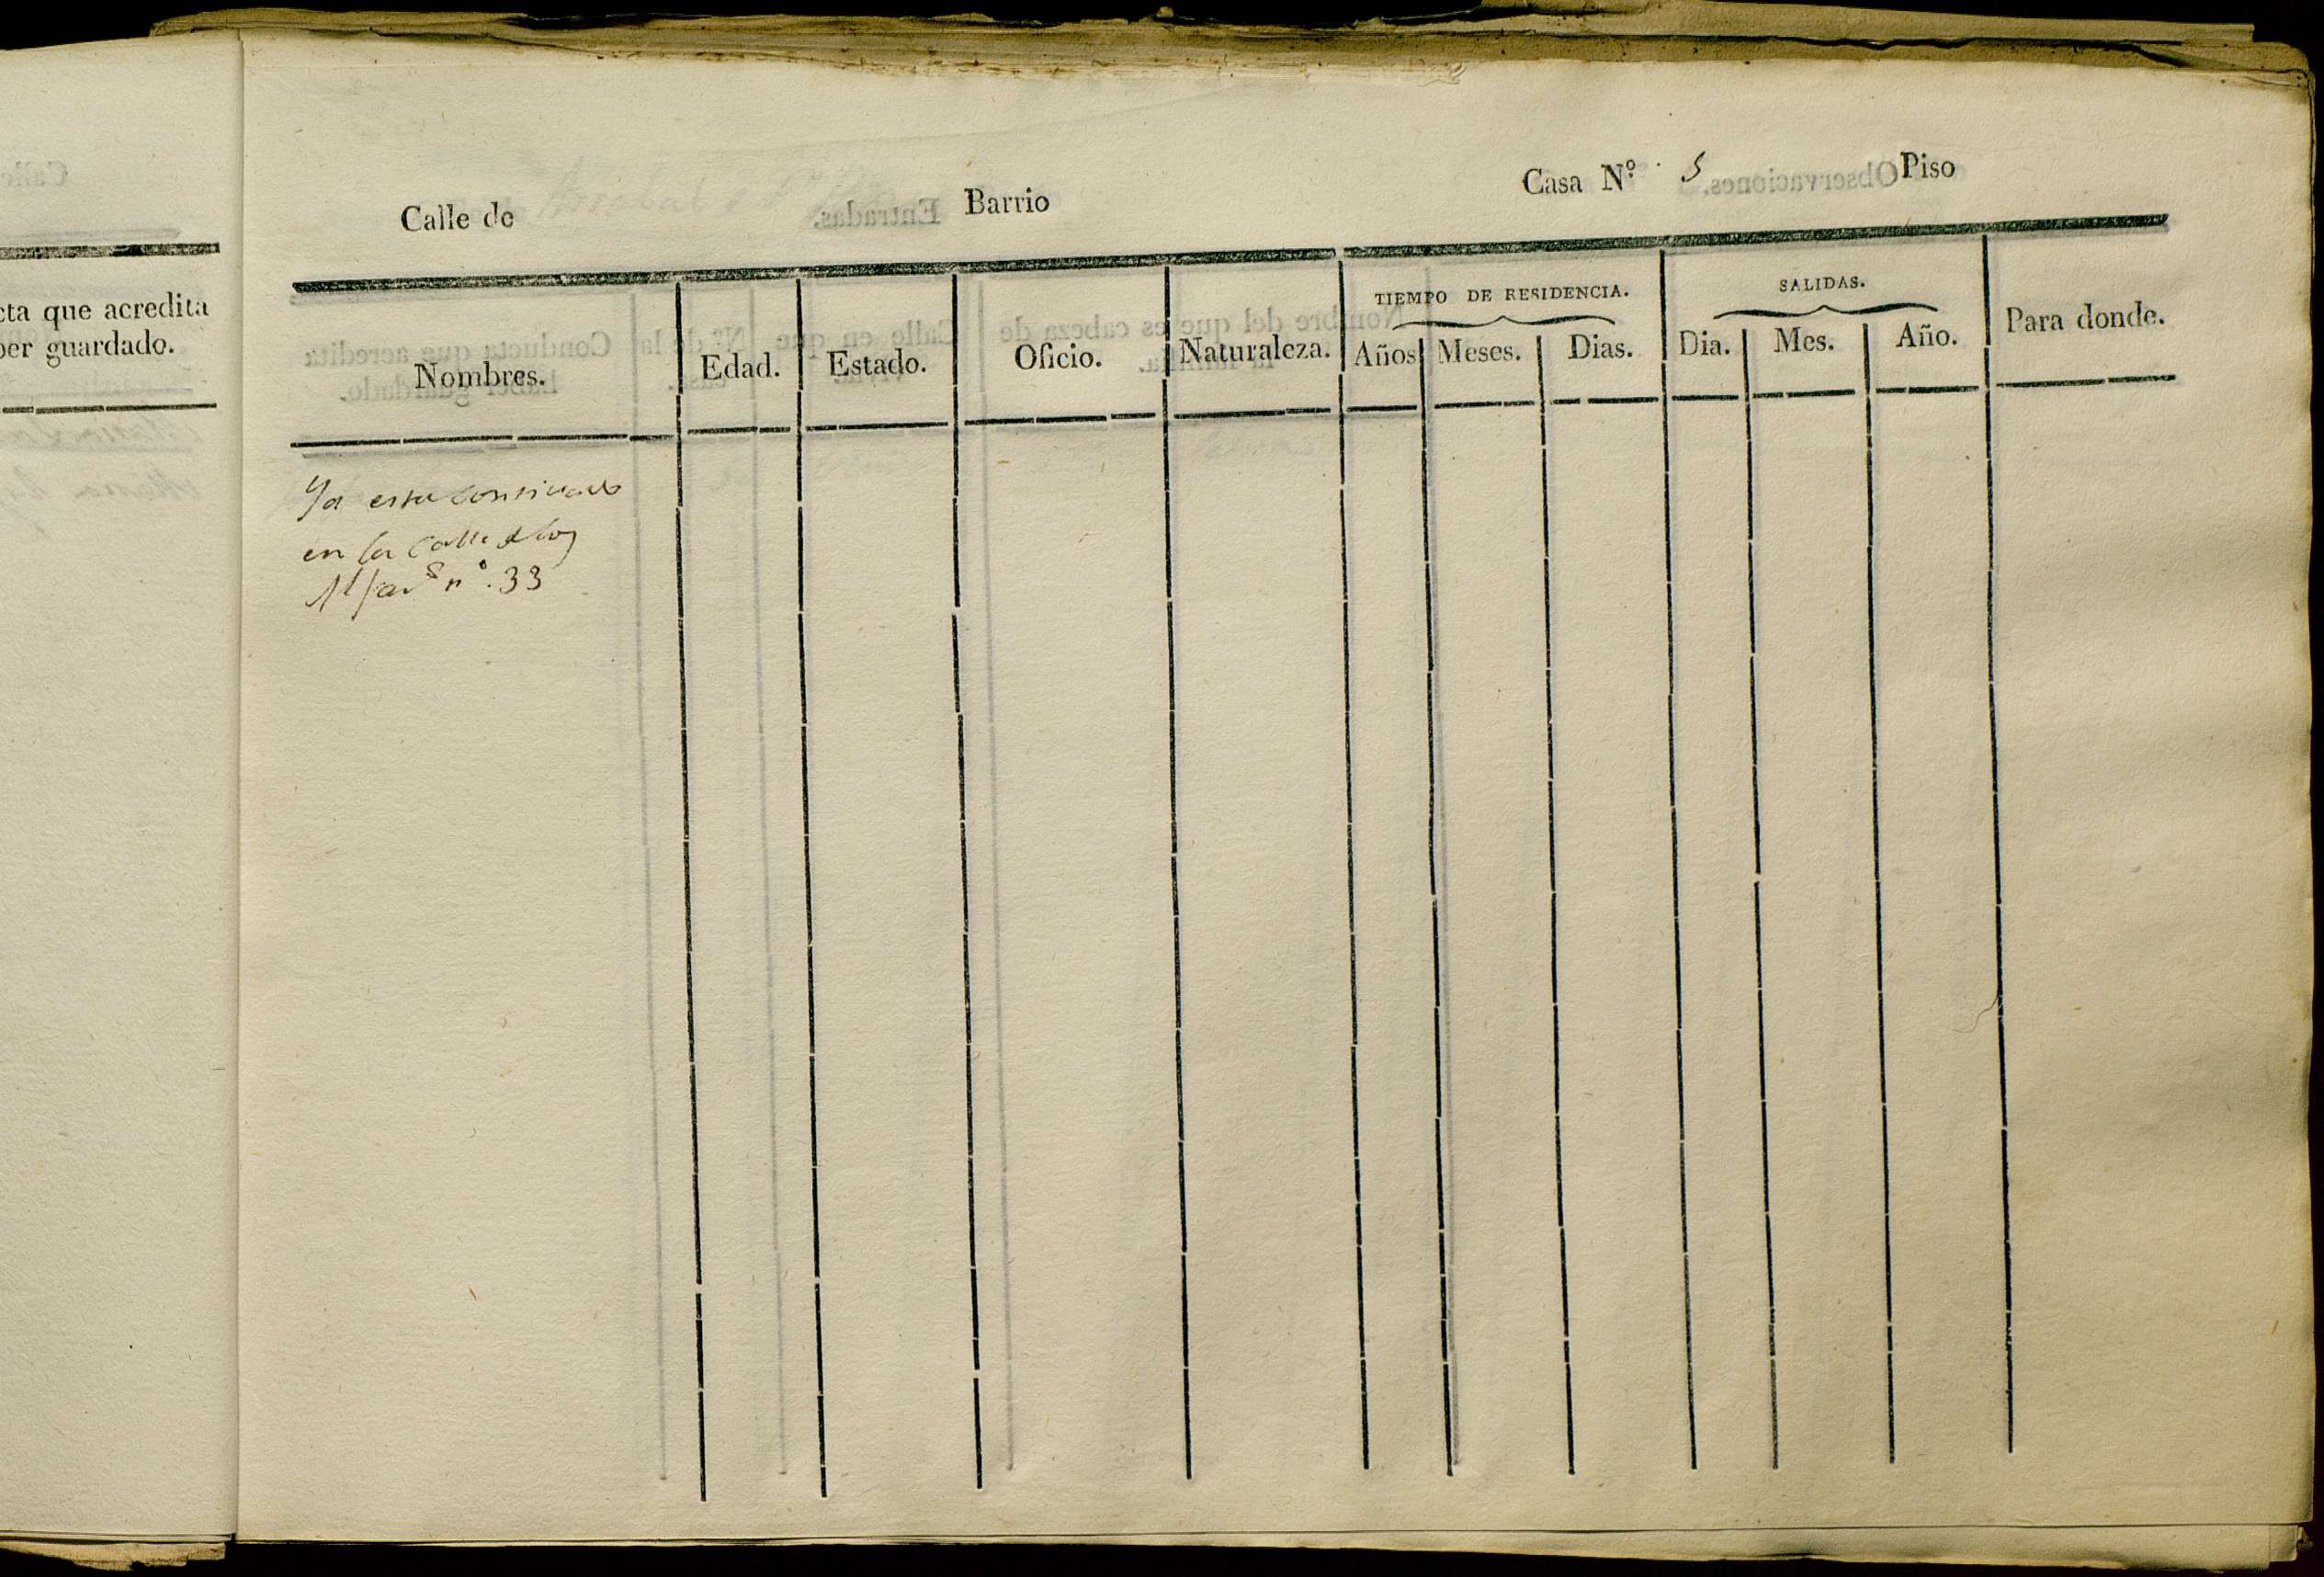 cta que acredita
ber guardado.
Calle de Barrio Casa N.º 5 Piso
TIEMPO DE RESIDENCIA. SALIDAS.
Nombres. Edad. Estado. Oficio. Naturaleza. Años Meses. Dias. Dia. Mes. Año. Para donde.
Ya esta
en la Calle
nº. 33